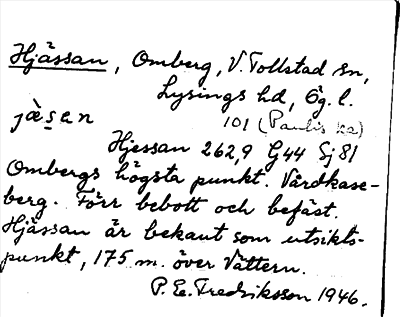 Hjässan, Omberg, V. Tollstad sn,
Lysings hd, Ög. l.
jæ̀sen
101 (Paulis ka)
Hjessan 262,9 G44 Sj 81
Ombergs högsta punkt. Vårdkase-
berg. Förr bebott och befäst.
Hjässan är bekant som utsikts-
punkt, 175 m. över Vättern.
P. E. Fredriksson 1946.